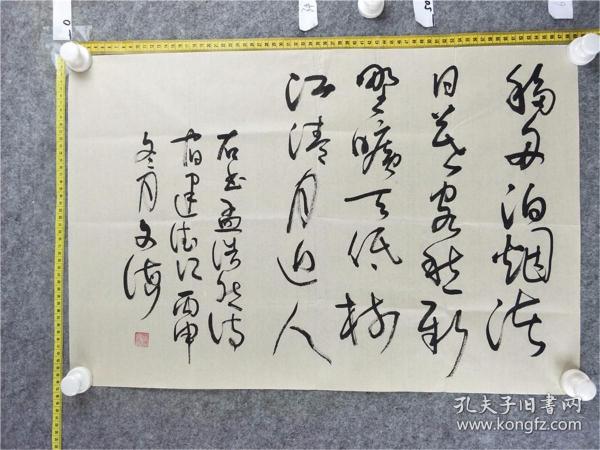 移舟泊烟渚
日暮客愁新
野旷天低树
江清月近人
右书孟浩然诗
宿建德江 丙申
冬月文海
孔夫子旧书网
www.kongfz.com